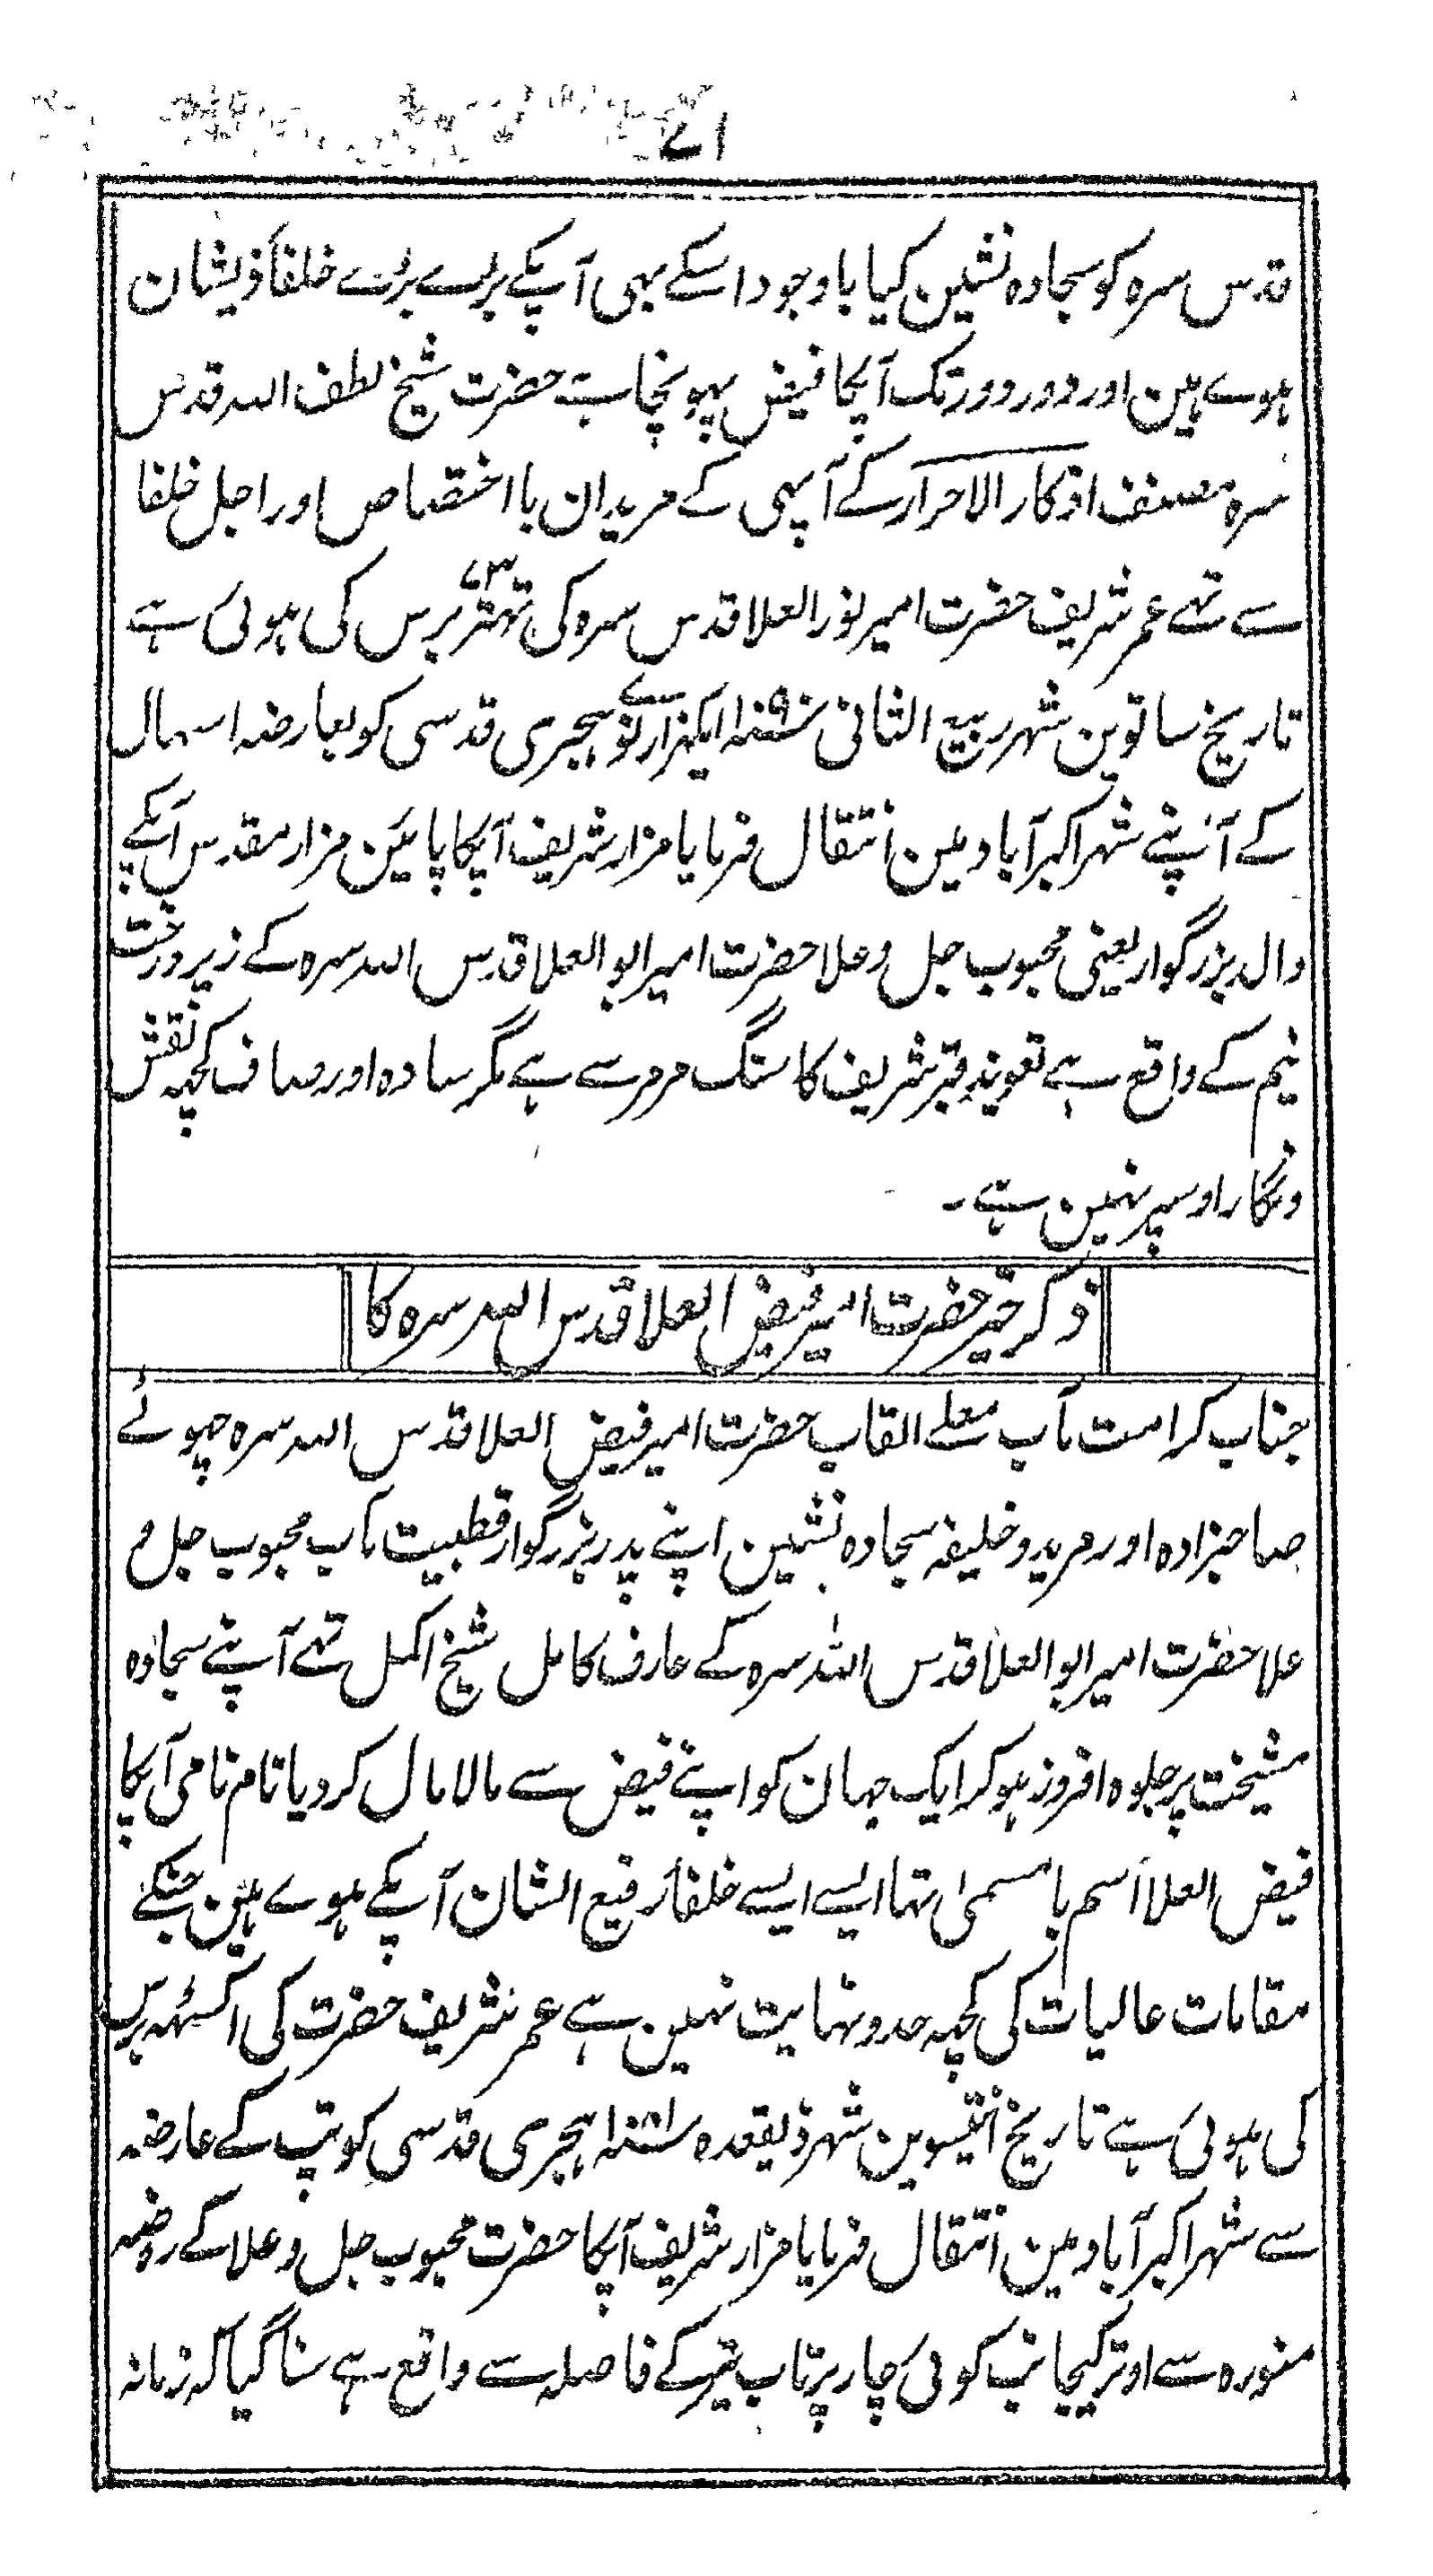 ۷۱
قدس سرہ کو سجادہ نشین کیا باوجود اسکے بہی آپکے بڑے بڑے خلفاٗ ذیشان
ہوے ہین اور دور دور تک آپکا فیض پہونچا ہے حضرت شیخ لطف اللہ قدس
سرہ مصنف اذکار الاحرار کے آپہی کے مریدان با اختصاص اور اجل خلفا
سے تہے عمر شریف حضرت امیر نور العلا قدس سرہ کی تہتر ۷۳ برس کی ہوئی ہے
تاریخ ساتوین شہر ربیع الثانی سنہ ۱۰۹۰ ایکہزار نوے ہجری قدسی کو بعارضہ اسہال
کے آپنے شہر اکبرآباد مین انتقال فرمایا مزار شریف آپکا پائین مزار مقدس آپکے
والد بزرگوار یعنی محبوب جل و علا حضرت امیر ابو العلا قدس اللہ سرہ کے زیر درخت
نیم کے واقع ہے تعویذ قبر شریف کا سنگ مرمر سے ہے مگر سادہ اور صاف کچہ نقش
و نگار اوسپر نہین ہے ۔
ذکر خیر حضرت امیر فیض العلا قدس اللہ سرہ کا
جناب کرامت مآب معلے القاب حضرت امیر فیض العلا قدس اللہ سرہ چہوٹے
صاحبزادہ اور مرید و خلیفہ سجادہ نشین اپنے پدر بزرگوار قطبیت مآب محبوب جل و
علا حضرت امیر ابو العلا قدس اللہ سرہ کے عارف کامل شیخ اکمل تہے آپنے سجادہ
مشیخت پر جلوہ افروز ہوکر ایک جہان کو اپنے فیض سے مالا مال کر دیا نام نامی آپکا
فیض العلا اسم با مسمی تہا ایسے ایسے خلفاٗ رفیع الشان آپکے ہوے ہین جنکے
مقامات عالیات کی کچہ حد و نہایت نہین ہے عمر شریف حضرت کی اکسٹہہ برس
کی ہوئی ہے تاریخ انتیسوین شہر ذیقعدہ سنہ ہجری قدسی کو تپ کے عارضہ
سے شہر اکبرآباد مین انتقال فرمایا مزار شریف آپکا حضرت محبوب جل و علا کے روضہ
منورہ سے اوتر کیجانب کوئی چار پرتاب تیر کے فاصلہ سے واقع ہے سنا گیا کہ زمانہ